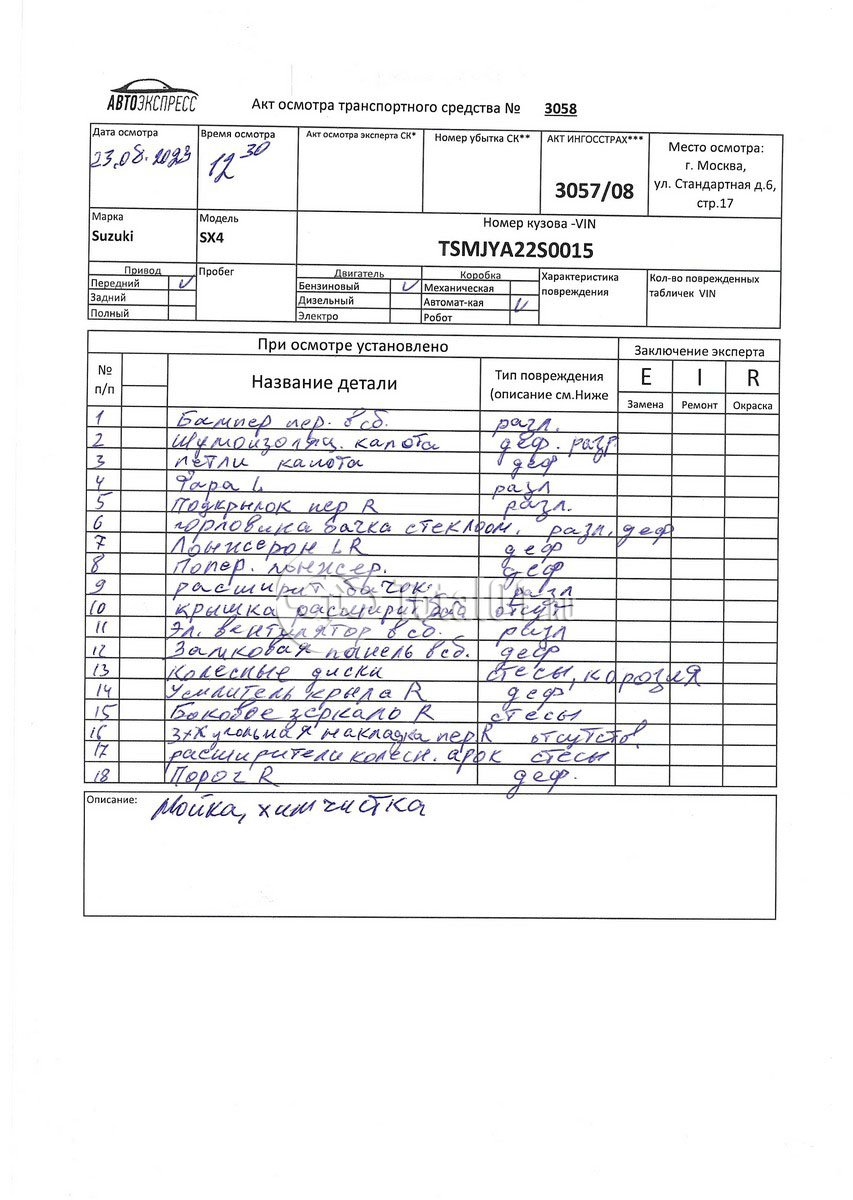 АВТОЭКСПРЕСС
Акт осмотра транспортного средства № 3058
Дата осмотра
23.08.2023
Время осмотра
12 30
Акт осмотра эксперта СК*
Номер убытка СК**
АКТ ИНГОССТРАХ***
3057/08
Место осмотра:
г. Москва,
ул. Стандартная д.6,
стр.17
Марка
Suzuki
Модель
SX4
Номер кузова -VIN
TSMJYA22S0015
Привод
Передний V
Задний
Полный
Пробег
Двигатель
Бензиновый V
Дизельный
Электро
Коробка
Механическая
Автомат-кая V
Робот
Характеристика
повреждения
Кол-во поврежденных
табличек VIN
При осмотре установлено
Заключение эксперта
№
п/п
Название детали
Тип повреждения
(описание см.Ниже
E I R
Замена Ремонт Окраска
1 Бампер пер. в сб. разл.
2 Шумоизоляц. капота деф. разр
3 петли капота деф
4 Фара L разл
5 Подкрылок пер R разл.
6 горловина бачка стеклоом. разл, деф
7 Лонжерон LR деф
8 Попер. лонжер. деф
9 расширит бачок разл
10 крышка расширит отсут
11 Эл. вентилятор в сб. разл
12 Замковая панель в сб. деф
13 колесные диски стесы, корозия
14 Усилитель крыла R деф
15 Боковое зеркало R стесы
16 3хугольная накладка пер R отсутств.
17 расширители колесн. арок стесы
18 Порог R деф.
Описание: Мойка, химчистка